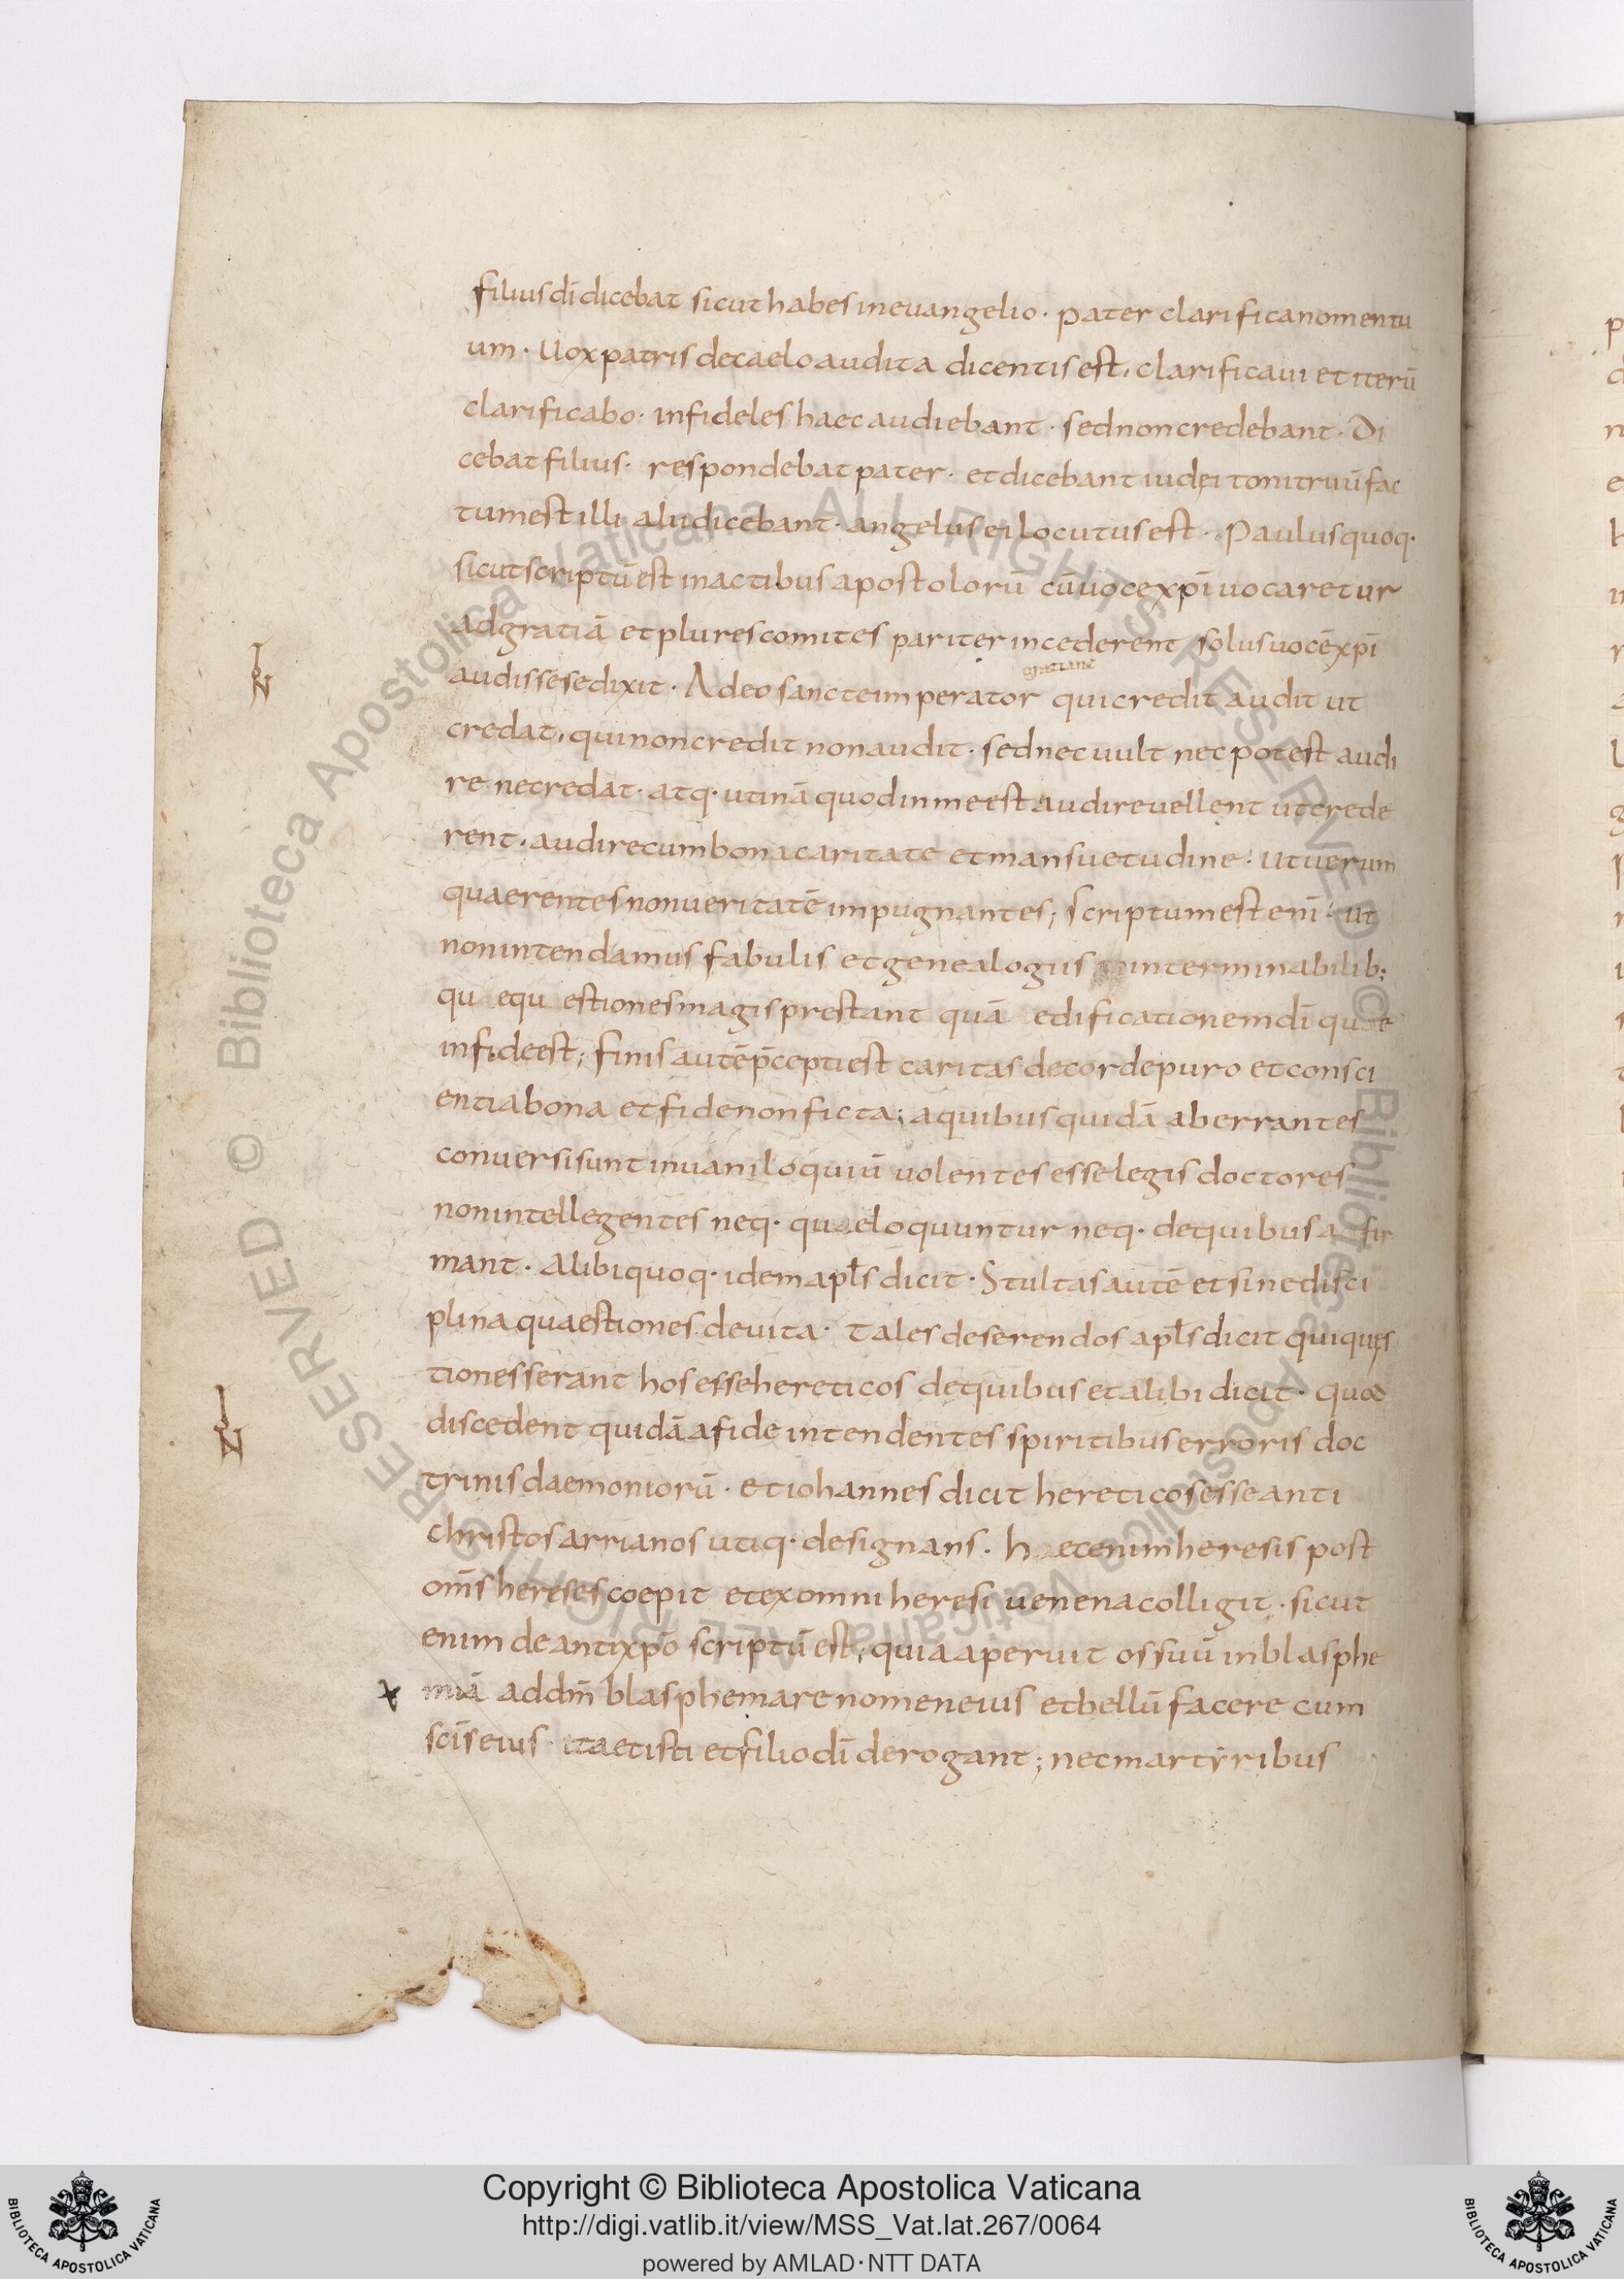 filius dī dicebat sicut habes in euangelio· pater clarifica nomen tu
um· Uox patris de caelo audita dicentis est, clarificaui et iterū
clarificabo· infideles haec audiebant· sed non credebant· Di
cebat filius· respondebat pater· et dicebant iudęi tonitruū fac
tum est illi alii dicebant· angelus ei locutus est· Paulus quoq·
sicut scriptū est in actibus apostolorū cū uoce xpī uocaretur
ad gratiā et plures comites pariter incederent solus uocē xpī
gratiane
audisse se dixit· Adeo sancte imperator qui credit audit ut
credat, qui non credit non audit· sed nec uult nec potest audi
re ne credat· atq· utinā quod in me est audire uellent ut crede
rent, audire cum bona caritate et mansuetudine· ut uerum
quaerentes non ueritatē impugnantes; scriptum est enī· ut
non intendamus fabulis et genealogiis interminabilib;
qu equ estiones magis prestant quā edificationem dī quae
in fide est; finis autē p̄cepti est caritas de corde puro et consci
entia bona et fide non ficta; a quibus quidā aberrantes
conuersi sunt in uaniloquiū uolentes esse legis doctores
non intellegentes neq· quae loquuntur neq· de quibus a fir
mant· Alibi quoq· idem apl̄s dicit· Stultas autē et sine disci
plina quaestiones deuita· Tales deserendos apl̄s dicit qui quęs
tiones serant hos esse hereticos de quibus et alibi dicit· quod
discedent quidā a fide intendentes spiritibus erroris doc
trinis daemoniorū· et iohannes dicit hereticos esse anti
christos arrianos utiq· designans. haec enim heresis post
om̄s hereses coepit et ex omni heresi uenena colligit· sicut
enim de antixpō scriptū est; quia aperuit os suū in blasphe
miā ad dn̄m blasphemare nomen eius et bellū facere cum
sc̄is eius· ita et isti et filio dī derogant; nec martyribus
Copyright © Biblioteca Apostolica Vaticana
http://digi.vatlib.it/view/MSS_Vat.lat.267/0064
powered by AMLAD·NTT DATA
BIBLIOTECA APOSTOLICA VATICANA
BIBLIOTECA APOSTOLICA VATICANA